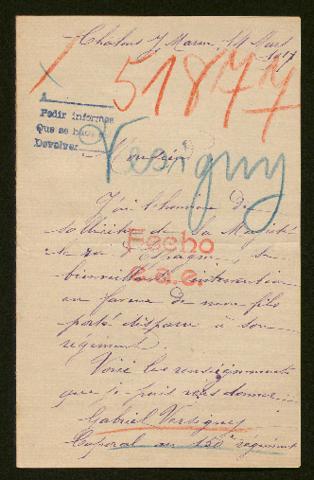 Chalons s/ Marne, 14 Mars
1917
51877
A
Pedir informes
Que se hace
Devolver
Vesigny
Monsieur
J'ai l'honneur de
solliciter de Sa Majesté
le roi d'Espagne, sa
Fecho
bienveillante intervention
en faveur de mon fils
porté disparu à son
régiment.
Voici les renseignements
que je puis vous donner
Gabriel Vesigny
Caporal au 150e régiment